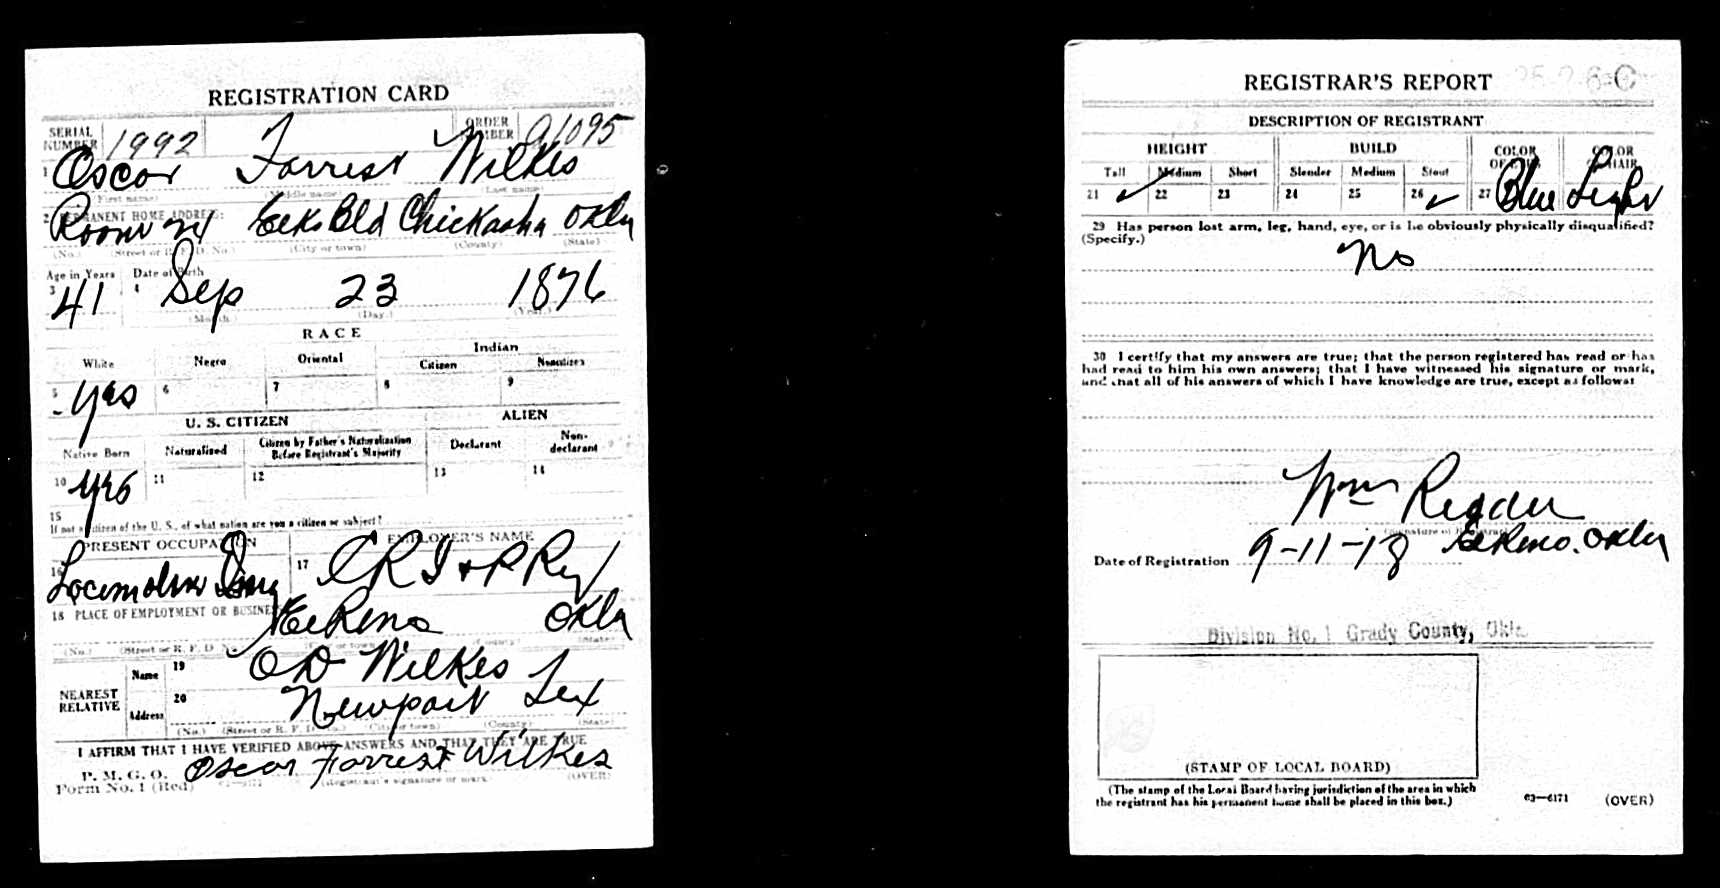 REGISTRATION CARD
SERIAL NUMBER 1992 ORDER NUMBER A1095
1 Oscar Forrest Wilkes
(First name) (Middle name) (Last name)
2 PERMANENT HOME ADDRESS:
Room Elks Bld Chickasha Okla
(No.) (Street or R. F. D. No.) (City or town) (County) (State)
Age in Years Date of Birth
3 41 4 Sep 23 1876
(Month.) (Day.) (Year.)
RACE
White Negro Oriental Indian
Citizen Noncitizen
5 yes 6 7 8 9
U. S. CITIZEN ALIEN
Native Born Naturalized Citizen by Father's Naturalization Before Registrant's Majority Declarant Non-declarant
10 yes 11 12 13 14
15
If not a citizen of the U. S., of what nation are you a citizen or subject?
PRESENT OCCUPATION EMPLOYER'S NAME
16 Locomotive Eng 17 C R I + P Ry
18 PLACE OF EMPLOYMENT OR BUSINESS
El Reno Okla
(No.) (Street or R. F. D. No.) (City or town) (County) (State)
NEAREST RELATIVE Name 19 O D Wilkes
Address 20 Newport Tex
(No.) (Street or R. F. D. No.) (City or town) (County) (State)
I AFFIRM THAT I HAVE VERIFIED ABOVE ANSWERS AND THAT THEY ARE TRUE
P. M. G. O.
Form No. 1 (Red) Oscar Forrest Wilkes
(Registrant's signature or mark) (OVER)
REGISTRAR'S REPORT
DESCRIPTION OF REGISTRANT
HEIGHT BUILD COLOR OF EYES COLOR OF HAIR
Tall Medium Short Slender Medium Stout
21 ✓ 22 23 24 25 26 ✓ 27 Blue Light
29 Has person lost arm, leg, hand, eye, or is he obviously physically disqualified?
(Specify.)
No
30 I certify that my answers are true; that the person registered has read or has
had read to him his own answers; that I have witnessed his signature or mark,
and that all of his answers of which I have knowledge are true, except as follows:
Wm
(Signature of Registrar)
Date of Registration 9-11-18 El Reno. Okla
Division No. 1 Grady County, Okla.
(STAMP OF LOCAL BOARD)
(The stamp of the Local Board having jurisdiction of the area in which
the registrant has his permanent home shall be placed in this box.)
03—6171 (OVER)